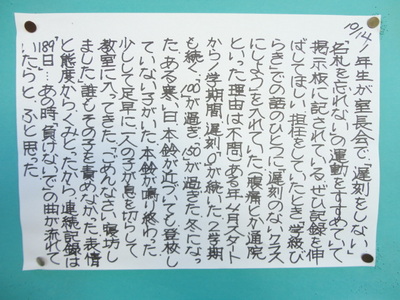 10/14 1年生が室長会で「遅刻をしない」
「名札を忘れない」の運動をすすめていて
掲示板に記されている。ぜひ記録を伸
ばしてほしい。担任をしていたとき、学級び
らきでの話のひとつに「遅刻のないクラス
にしよう」を入れていた。(腹痛とか通院
といった理由は不問)ある年、4月スタート
から1学期間、遅刻0が続いた。2学期
も続く、「100が過ぎ」「150が過ぎた。冬になっ
た。ある寒い日、本鈴が近づいても登校し
ていない子がいた。本鈴が鳴り終わった。
少しして足早に一人の子が息を切らして
教室に入ってきた。「ごめんなさい。寝坊し
ました」誰もその子を責めなかった。表情
と態度からくみとったから。連続記録は
「189日」…あの時「負けないで」の曲が流れて
いたらと、ふと思った。